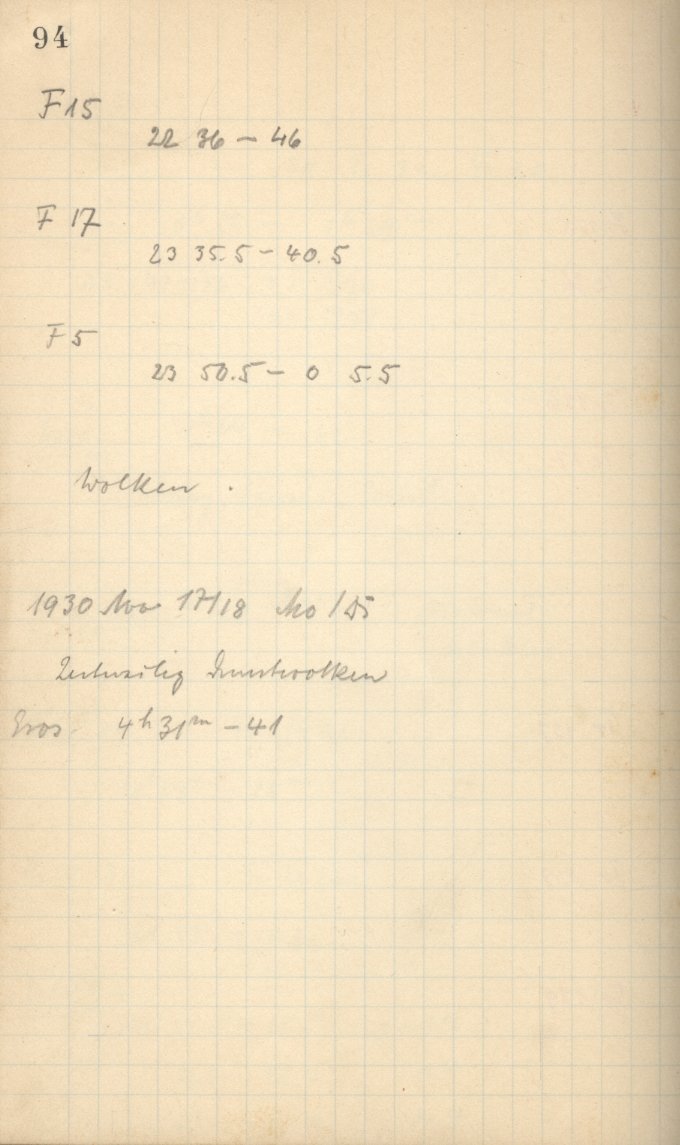 94
F 15
22 36 – 46
F 17
23 35.5 – 40.5
F 5
23 50.5 – 0 5.5
Wolken .
1930 Nov 17/18 Mo / Di
Zeitweilig Dunstwolken
Eros. 4h 31m – 41